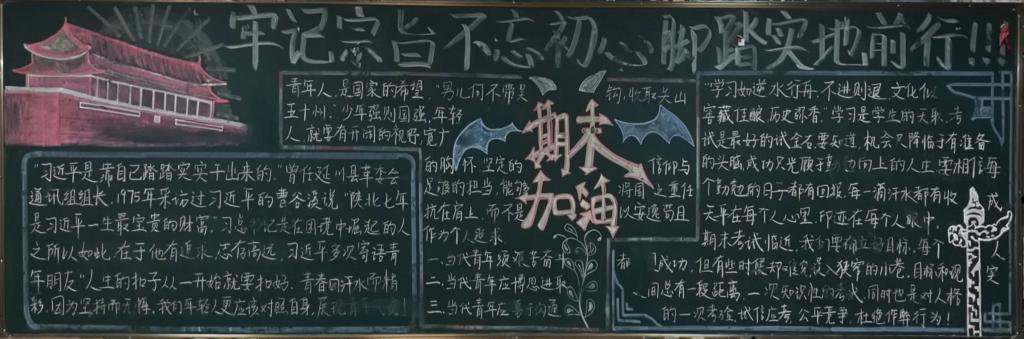 牢记宗旨不忘初心脚踏实地前行!!!
青年人,是国家的希望,"男儿何不带吴钩,收取关山
五十州."少年强则国强,年轻
人就要有开阔的视野,宽广
的胸怀,坚定的信仰与
足够的担当,能够将国之重任
抗在肩上,而不是以安逸苟且
作为个人追求
一.当代青年须艰苦奋斗
二.当代青年应博思进取
三.当代青年应善于沟通
期末
加油
"习近平是靠自己踏踏实实干出来的."曾任延川县革委会
通讯组组长,1975年采访过习近平的曹谷溪说,"陕北七年
是习近平一生最宝贵的财富."习总书记是在困境中崛起的人
之所以如此,在于他有追求,志存高远,习近平多次寄语青
年朋友"人生的扣子从一开始就要扣好.青春因汗水而精
彩,因为坚持而无悔,我们年轻人更应该对照自身,展现青年
"学习如逆水行舟,不进则退,文化似
窖藏佳酿,历久弥香."学习是学生的天职,考
试是最好的试金石,要知道,机会只降临于有准备
的头脑,成功只光顾于 向上的人生,要相信每
个勤勉的日子都有回报,每一滴汗水都有收
天平在每个人心里,印迹在每个人眼中.
期末考试临近,我们要确立好目标,每个人
都 成功,但有些时候却难免误入狭窄的小巷,目标和现实
间总有一段距离,一次知识性的考试,同时也是对人格
的一次考验,诚信应考,公平竞争,杜绝作弊行为!